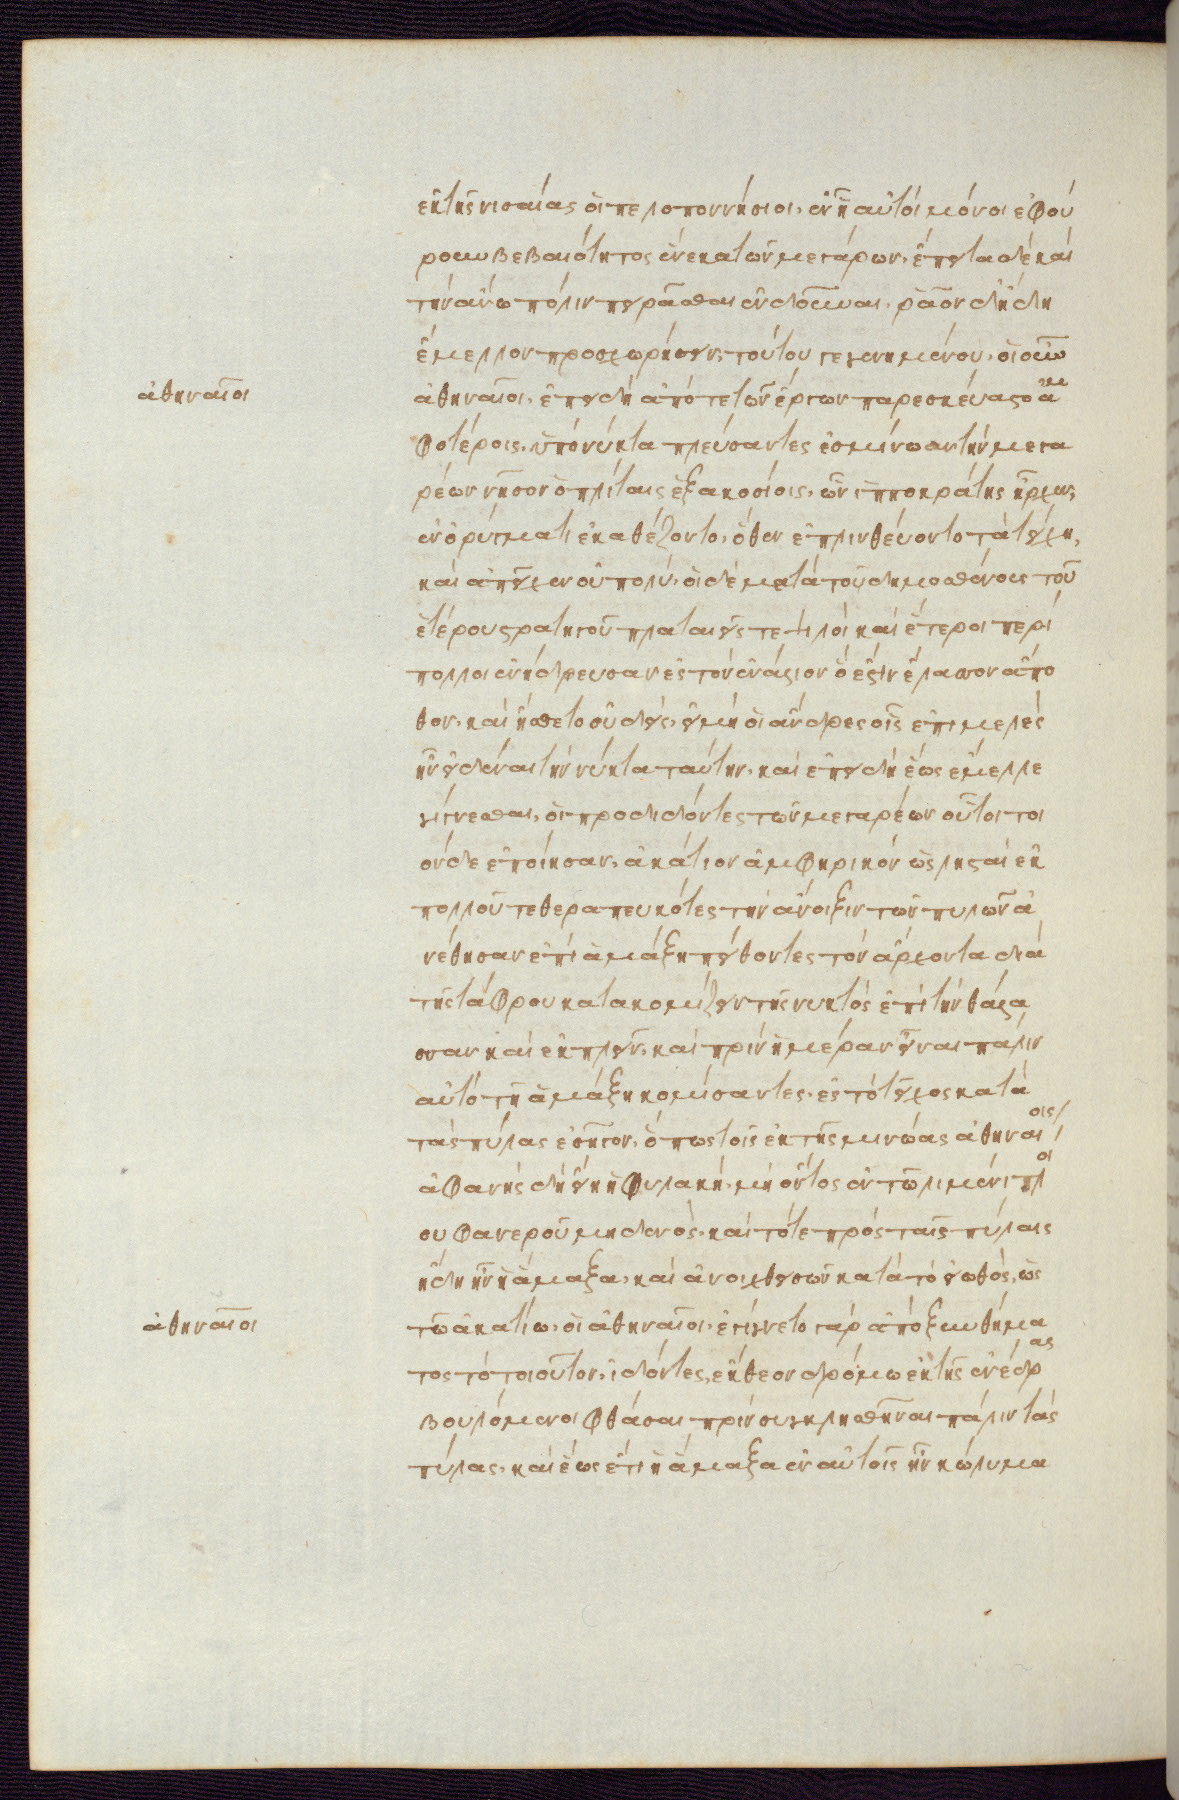 ἐκ τῆς νισαίας ὁι πελοποννήσιοι, ἐν ἧ αὐτοὶ μόνοι ἐφρού
ρουν βεβαιότητος ἕνεκα τῶν μεγάρων, ἔπειτα δὲ καὶ
τὴν ἄνω πόλιν πειρᾶσθαι ἐνδοῦναι. ρᾶον δ' ἤδη
ἔμελλον προσχωρήσειν, τούτου γεγενημένου. ὁι οὖν
ἀθηναῖοι
ἀθηναῖοι, ἐπειδὴ ἀπό τε τῶν ἔργων παρεσκεύαστο ἀμ
φοτέροις, ὑπὸ νύκτα πλεύσαντες ἐς μίνωαν τὴν μεγα
ρέων νῆσον ὁπλίταις ἑξακοσίοις, ὧν ἱπποκράτης ἦρχεν,
ἐν ὀρύγματι ἐκαθέζοντο, ὅθεν ἐπλίνθευον τὰ τείχη,
καὶ ἀπεῖχεν οὐ πολύ. ὁι δὲ μετὰ τοῦ δημοσθένους τοῦ
ἑτέρου στρατηγοῦ πλαταιεῖς τε ψιλοὶ καὶ ἕτεροι περί
πολοι ἐνήδρευσαν ἐς τὸν ἐνάλιον ὅ ἐστιν ἔλασσον ἄπο
θεν. καὶ ἤσθετο οὐδεὶς, εἰ μὴ ὁι ἄνδρες οἷς ἐπιμελὲς
ἦν εἰδέναι τὴν νύκτα ταύτην. καὶ ἐπειδὴ ἕως ἔμελλε
γίγνεσθαι, ὁι προδιδόντες τῶν μεγαρέων οὗτοι τοι
όνδε ἐποίησαν. ἀκάτιον ἀμφηρικὸν ὡς λησταὶ ἐκ
πολλοῦ τεθεραπευκότες τὴν ἄνοιξιν τῶν πυλῶν ἀ
νέθησαν ἐπὶ ἁμάξη πείθοντες τὸν ἄρχοντα διὰ
τῆς τάφρου κατακομίζειν τῆς νυκτὸς ἐπὶ τὴν θάλα
σσαν καὶ ἐκπλεῖν, καὶ πρὶν ἡμέραν εἶναι πάλιν
αὐτὸ τῆ ἁμάξη κομίσαντες, ἐς τὸ τεῖχος κατὰ
τὰς πύλας ἐσῆγον, ὅπως τοῖς ἐκ τῆς μινώας ἀθηναίοις
ἀφανὴς δὴ εἴη ἡ φυλακὴ, μὴ ὄντος ἐν τῶ λιμένι πλοί
ου φανεροῦ μηδενός. καὶ τότε πρὸς ταῖς πύλαις
ἤδη ἦν ἡ ἅμαξα, καὶ ἀνοιχθεισῶν κατὰ τὸ εἰωθὸς, ὡς
ἀθηναῖοι
τῶ ἀκατίω, ὁι ἀθηναῖοι, ἐγίγνετο γὰρ ἀπὸ ξυνθήμα
τος τὸ τοιοῦτον, ἰδόντες, ἔθεον δρόμω ἐκ τῆς ἐνέδρας
βουλόμενοι φθάσαι πρὶν συγκλησθῆναι πάλιν τὰς
πύλας, καὶ ἕως ἔτι ἡ ἅμαξα ἐν αὐταῖς ἦν κώλυμα